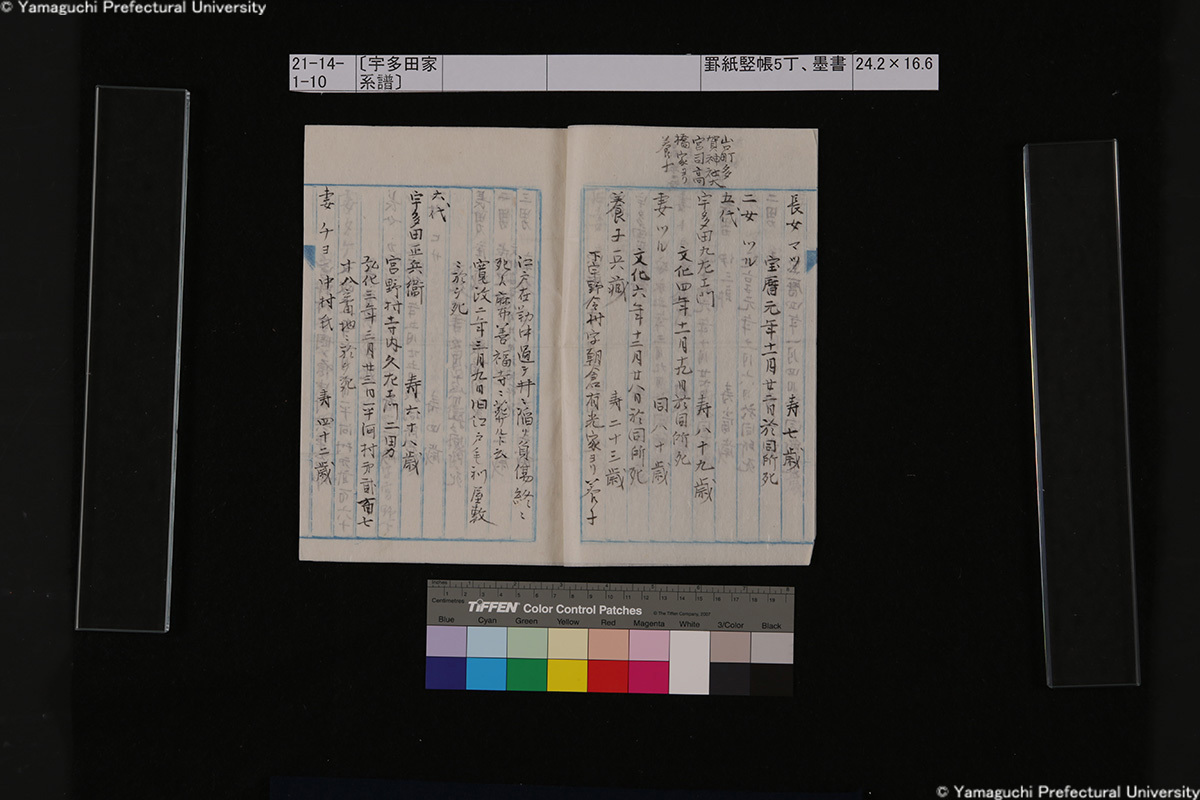 © Yamaguchi Prefectural University
21-14-1-10
〔宇多田家系譜〕
罫紙竪帳5丁、墨書
24.2×16.6
長女マツ 寿七歳
宝暦元年十二月廿二日於同所死
二女ツル
五代
山口町多
賀神社大
宮司高
橋家ヨリ
養子
宇多田九左エ門 寿八十九歳
文化四年十二月十九日於同所死
妻ツル 同八十歳
文化六年十二月廿八日於同所死
養子兵蔵 寿二十三歳
下宇野令村字朝倉有光家ヨリ養子
江戸在勤中過テ井ニ陥リ負傷終ニ
死ス麻布善福寺ニ葬ルト云
寛政二年三月九日旧江戸毛利屋敷
ニ於テ死
六代
宇多田正兵衛 寿六十八歳
宮野村寺内久左エ門二男
弘化三年三月廿三日 河村第貮百七
十八番地ニ於テ死
妻チヨ 中村氏 寿四十二歳
inches
Centimetres
TIFFEN Color Control Patches
© The Tiffen Company, 2007
Blue Cyan Green Yellow Red Magenta White 3/Color Black
© Yamaguchi Prefectural University